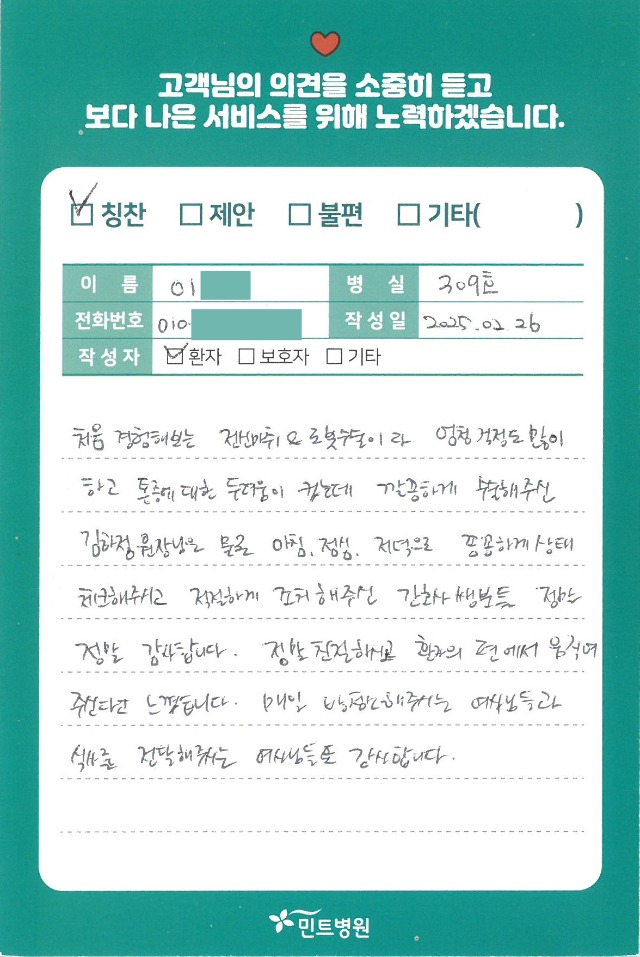 고객님의 의견을 소중히 듣고
보다 나은 서비스를 위해 노력하겠습니다.
칭찬 제안 불편 기타( )
이 름 이 병 실 309호
전화번호 010- 작성일 2025.02.26
작성자 환자 보호자 기타
처음 경험해보는 전신마취요 로봇수술이라 엄청 걱정도 많이
하고 통증에 대한 두려움이 컸는데 깔끔하게 수술해주신
김하정 원장님은 물론 아침, 점심, 저녁으로 꼼꼼하게 상태
체크해주시고 적절하게 조치해주신 간호사쌤분들 정말
정말 감사합니다. 정말 친절하시고 환자의 편에서 움직여
주신다 느꼈습니다. 매일 해주시는 여사님들과
식사를 전달해주시는 여사님들도 감사합니다.
민트병원